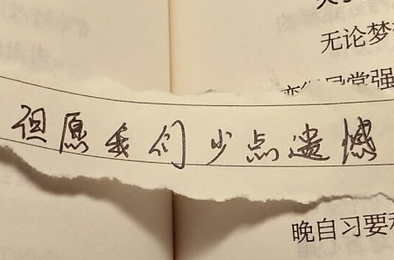 无论梦
但愿我们少点遗憾
晚自习要